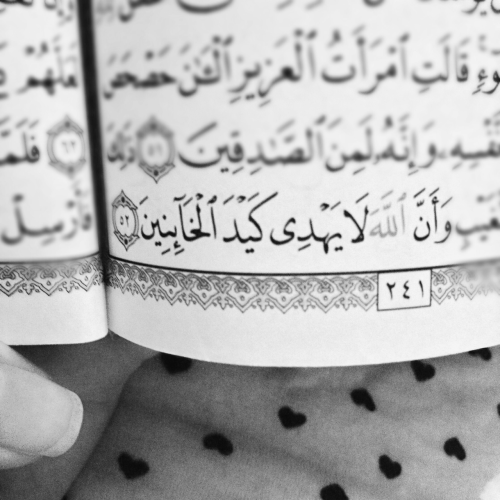 وءٍ قَالَتِ ٱمْرَأَتُ ٱلْعَزِيزِ ٱلْـَٰٔنَ حَصْحَصَ
نَفْسِهِۦ وَإِنَّهُۥ لَمِنَ ٱلصَّـٰدِقِينَ ٥١ ذَٰلِكَ
وَأَنَّ ٱللَّهَ لَا يَهْدِى كَيْدَ ٱلْخَآئِنِينَ ٥٢
٢٤١
لَعَلَّهُمْ
٦٢ فَلَمَّا
فَأَرْسِلْ